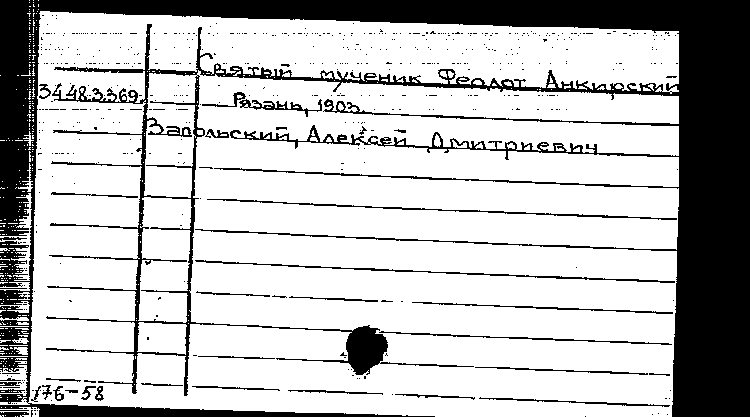 Святый мученик Феодот Анкирский
34.48.3.369. Рязань, 1903.
Запольский, Алексей Дмитриевич
176-58